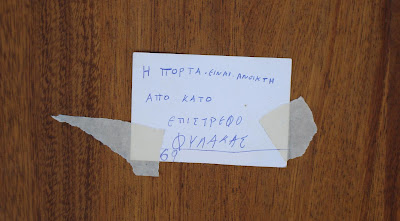 Η ΠΟΡΤΑ.ΕΙΝΑΙ.ΑΝΟΙΚΤΗ
ΑΠΟ ΚΑΤΟ
ΕΠΙΣΤΡΕΦΟ
ΦΥΛΑΚΑΣ
69